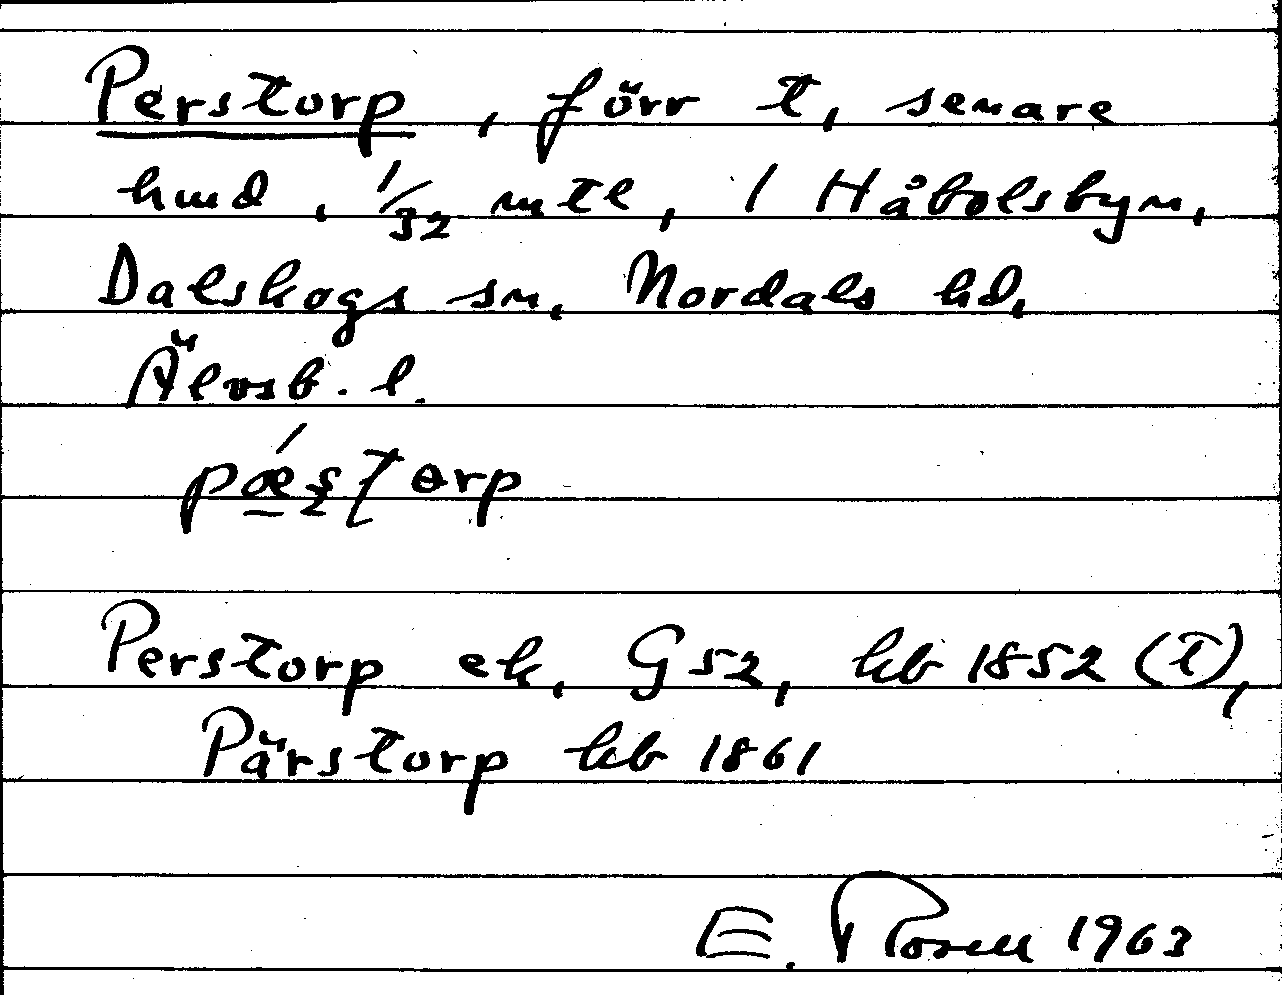 Perstorp, förr t, senare
hmd, 1/32 mtl, 1 Håbolsbyn,
Dalskogs sn, Nordals hd,
Älvsb. l.
pǽstɵrp
Perstorp ek, G 52, hb 1852 (t),
Pärstorp hb 1861
E. Rosell 1963